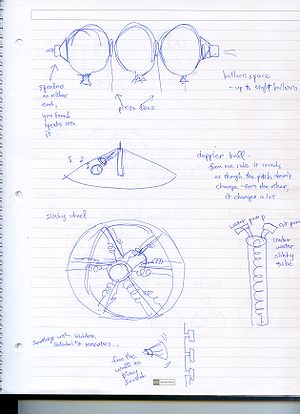 speakers
on either
end,
you
speaks into
it
piezo discs
balloon space
- up to eight balloons
doppler ball -
from one side it sounds
as though the pitch doesn't
change - from the other,
it changes a lot
slinky wheel
water pump
air pump
under
water
slinky
tube
something with hidden
fan the
wall to
play
sound